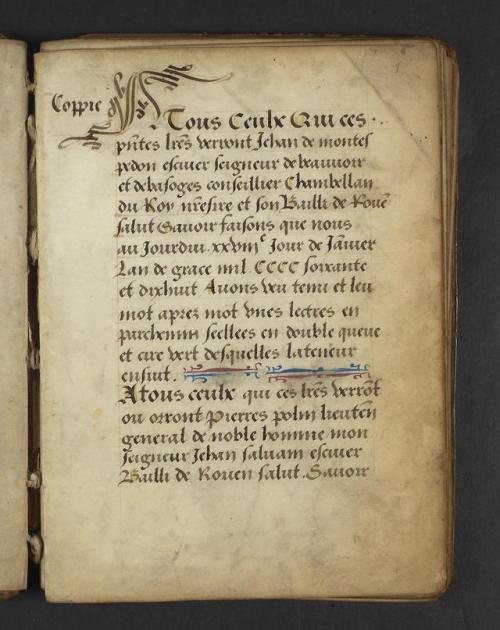 Coppie
A Tous Ceulx Qui ces
pñtes lrẽs verront Jehan de montes
pedon escuier seigneur de beauuoir
et de basoges conseillier Chambellan
du Roy nr̃e sire et son Bailli de Rouẽ
salut Sauoir faisons que nous
au Jourdui xxviiiᵉ Jour de Januier
Lan de grace mil CCCC soixante
et dixhuit Auons veu tenu et leu
mot aprez mot vnes lectres en
parchemin scellees en double queue
et cire vert desquelles la teneur
ensuit.
A tous ceulx qui ces lrẽs verrõt
ou orront Pierres polin lieutẽn
general de noble homme mon
seigneur Jehan saluam escuier
Bailli de Rouen salut. Sauoir